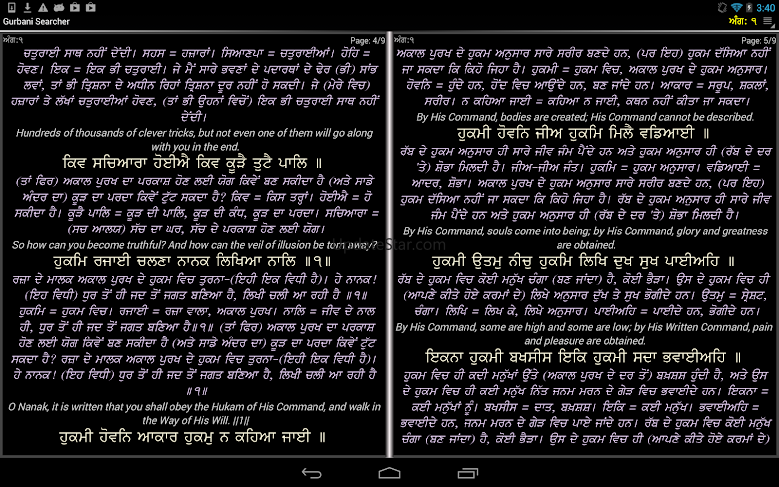 3:40
Gurbani Searcher
ਅੰਗ: ੧
ਅੰਗ:੧
Page: 4/9
ਚਤੁਰਾਈ ਸਾਥ ਨਹੀਂ ਦੇਂਦੀ। ਸਹਸ = ਹਜ਼ਾਰਾਂ। ਸਿਆਣਪਾ = ਚਤੁਰਾਈਆਂ। ਹੋਹਿ =
ਹੋਵਣ। ਇਕ = ਇਕ ਭੀ ਚਤੁਰਾਈ। ਜੇ ਮੈਂ ਸਾਰੇ ਭਵਣਾਂ ਦੇ ਪਦਾਰਥਾਂ ਦੇ ਢੇਰ (ਭੀ) ਸਾਂਭ
ਲਵਾਂ, ਤਾਂ ਭੀ ਤ੍ਰਿਸ਼ਨਾ ਦੇ ਅਧੀਨ ਰਿਹਾਂ ਤ੍ਰਿਸ਼ਨਾ ਦੂਰ ਨਹੀਂ ਹੋ ਸਕਦੀ। ਜੇ (ਮੇਰੇ ਵਿਚ)
ਹਜ਼ਾਰਾਂ ਤੇ ਲੱਖਾਂ ਚਤੁਰਾਈਆਂ ਹੋਵਣ, (ਤਾਂ ਭੀ ਉਹਨਾਂ ਵਿਚੋਂ) ਇਕ ਭੀ ਚਤੁਰਾਈ ਸਾਥ ਨਹੀਂ
ਦੇਂਦੀ।
Hundreds of thousands of clever tricks, but not even one of them will go along
with you in the end.
ਕਿਵ ਸਚਿਆਰਾ ਹੋਈਐ ਕਿਵ ਕੂੜੈ ਤੁਟੈ ਪਾਲਿ ॥
(ਤਾਂ ਫਿਰ) ਅਕਾਲ ਪੁਰਖ ਦਾ ਪਰਕਾਸ਼ ਹੋਣ ਲਈ ਯੋਗ ਕਿਵੇਂ ਬਣ ਸਕੀਦਾ ਹੈ (ਅਤੇ ਸਾਡੇ
ਅੰਦਰ ਦਾ) ਕੂੜ ਦਾ ਪਰਦਾ ਕਿਵੇਂ ਟੁੱਟ ਸਕਦਾ ਹੈ? ਕਿਵ = ਕਿਸ ਤਰ੍ਹਾਂ। ਹੋਈਐ = ਹੋ
ਸਕੀਦਾ ਹੈ। ਕੂੜੈ ਪਾਲਿ = ਕੂੜ ਦੀ ਪਾਲਿ, ਕੂੜ ਦੀ ਕੰਧ, ਕੂੜ ਦਾ ਪਰਦਾ। ਸਚਿਆਰਾ =
(ਸਚ ਆਲਯ) ਸੱਚ ਦਾ ਘਰ, ਸੱਚ ਦੇ ਪਰਕਾਸ਼ ਹੋਣ ਲਈ ਯੋਗ।
So how can you become truthful? And how can the veil of illusion be torn away?
ਹੁਕਮਿ ਰਜਾਈ ਚਲਣਾ ਨਾਨਕ ਲਿਖਿਆ ਨਾਲਿ ॥੧॥
ਰਜ਼ਾ ਦੇ ਮਾਲਕ ਅਕਾਲ ਪੁਰਖ ਦੇ ਹੁਕਮ ਵਿਚ ਤੁਰਨਾ-(ਇਹੀ ਇਕ ਵਿਧੀ ਹੈ)। ਹੇ ਨਾਨਕ!
(ਇਹ ਵਿਧੀ) ਧੁਰ ਤੋਂ ਹੀ ਜਦ ਤੋਂ ਜਗਤ ਬਣਿਆ ਹੈ, ਲਿਖੀ ਚਲੀ ਆ ਰਹੀ ਹੈ ॥੧॥
ਹੁਕਮਿ = ਹੁਕਮ ਵਿਚ। ਰਜਾਈ = ਰਜ਼ਾ ਵਾਲਾ, ਅਕਾਲ ਪੁਰਖ। ਨਾਲਿ = ਜੀਵ ਦੇ ਨਾਲ
ਹੀ, ਧੁਰ ਤੋਂ ਹੀ ਜਦ ਤੋਂ ਜਗਤ ਬਣਿਆ ਹੈ॥੧॥ (ਤਾਂ ਫਿਰ) ਅਕਾਲ ਪੁਰਖ ਦਾ ਪਰਕਾਸ਼
ਹੋਣ ਲਈ ਯੋਗ ਕਿਵੇਂ ਬਣ ਸਕੀਦਾ ਹੈ (ਅਤੇ ਸਾਡੇ ਅੰਦਰ ਦਾ) ਕੂੜ ਦਾ ਪਰਦਾ ਕਿਵੇਂ ਟੁੱਟ
ਸਕਦਾ ਹੈ? ਰਜ਼ਾ ਦੇ ਮਾਲਕ ਅਕਾਲ ਪੁਰਖ ਦੇ ਹੁਕਮ ਵਿਚ ਤੁਰਨਾ-(ਇਹੀ ਇਕ ਵਿਧੀ ਹੈ)।
ਹੇ ਨਾਨਕ! (ਇਹ ਵਿਧੀ) ਧੁਰ ਤੋਂ ਹੀ ਜਦ ਤੋਂ ਜਗਤ ਬਣਿਆ ਹੈ, ਲਿਖੀ ਚਲੀ ਆ ਰਹੀ ਹੈ
॥੧॥
O Nanak, it is written that you shall obey the Hukam of His Command, and walk in
the Way of His Will. ||1||
ਹੁਕਮੀ ਹੋਵਨਿ ਆਕਾਰ ਹੁਕਮੁ ਨ ਕਹਿਆ ਜਾਈ ॥
ਅੰਗ:੧
Page: 5/9
ਅਕਾਲ ਪੁਰਖ ਦੇ ਹੁਕਮ ਅਨੁਸਾਰ ਸਾਰੇ ਸਰੀਰ ਬਣਦੇ ਹਨ, (ਪਰ ਇਹ) ਹੁਕਮ ਦੱਸਿਆ ਨਹੀਂ
ਜਾ ਸਕਦਾ ਕਿ ਕਿਹੋ ਜਿਹਾ ਹੈ। ਹੁਕਮੀ = ਹੁਕਮ ਵਿਚ, ਅਕਾਲ ਪੁਰਖ ਦੇ ਹੁਕਮ ਅਨੁਸਾਰ।
ਹੋਵਨਿ = ਹੁੰਦੇ ਹਨ, ਹੋਂਦ ਵਿਚ ਆਉਂਦੇ ਹਨ, ਬਣ ਜਾਂਦੇ ਹਨ। ਆਕਾਰ = ਸਰੂਪ, ਸ਼ਕਲਾਂ,
ਸਰੀਰ। ਨ ਕਹਿਆ ਜਾਈ = ਕਹਿਆ ਨ ਜਾਈ, ਕਥਨ ਨਹੀਂ ਕੀਤਾ ਜਾ ਸਕਦਾ।
By His Command, bodies are created; His Command cannot be described.
ਹੁਕਮੀ ਹੋਵਨਿ ਜੀਅ ਹੁਕਮਿ ਮਿਲੈ ਵਡਿਆਈ ॥
ਰੱਬ ਦੇ ਹੁਕਮ ਅਨੁਸਾਰ ਹੀ ਸਾਰੇ ਜੀਵ ਜੰਮ ਪੈਂਦੇ ਹਨ ਅਤੇ ਹੁਕਮ ਅਨੁਸਾਰ ਹੀ (ਰੱਬ ਦੇ ਦਰ
'ਤੇ) ਸ਼ੋਭਾ ਮਿਲਦੀ ਹੈ। ਜੀਅ-ਜੀਅ ਜੰਤ। ਹੁਕਮਿ = ਹੁਕਮ ਅਨੁਸਾਰ। ਵਡਿਆਈ =
ਆਦਰ, ਸ਼ੋਭਾ। ਅਕਾਲ ਪੁਰਖ ਦੇ ਹੁਕਮ ਅਨੁਸਾਰ ਸਾਰੇ ਸਰੀਰ ਬਣਦੇ ਹਨ, (ਪਰ ਇਹ)
ਹੁਕਮ ਦੱਸਿਆ ਨਹੀਂ ਜਾ ਸਕਦਾ ਕਿ ਕਿਹੋ ਜਿਹਾ ਹੈ। ਰੱਬ ਦੇ ਹੁਕਮ ਅਨੁਸਾਰ ਹੀ ਸਾਰੇ ਜੀਵ
ਜੰਮ ਪੈਂਦੇ ਹਨ ਅਤੇ ਹੁਕਮ ਅਨੁਸਾਰ ਹੀ (ਰੱਬ ਦੇ ਦਰ 'ਤੇ) ਸ਼ੋਭਾ ਮਿਲਦੀ ਹੈ।
By His Command, souls come into being; by His Command, glory and greatness
are obtained.
ਹੁਕਮੀ ਉਤਮੁ ਨੀਚੁ ਹੁਕਮਿ ਲਿਖਿ ਦੁਖ ਸੁਖ ਪਾਈਅਹਿ ॥
ਰੱਬ ਦੇ ਹੁਕਮ ਵਿਚ ਕੋਈ ਮਨੁੱਖ ਚੰਗਾ (ਬਣ ਜਾਂਦਾ) ਹੈ, ਕੋਈ ਭੈੜਾ। ਉਸ ਦੇ ਹੁਕਮ ਵਿਚ ਹੀ
(ਆਪਣੇ ਕੀਤੇ ਹੋਏ ਕਰਮਾਂ ਦੇ) ਲਿਖੇ ਅਨੁਸਾਰ ਦੁੱਖ ਤੇ ਸੁਖ ਭੋਗੀਦੇ ਹਨ। ਉਤਮੁ = ਸ੍ਰੇਸ਼ਟ,
ਚੰਗਾ। ਲਿਖਿ = ਲਿਖ ਕੇ, ਲਿਖੇ ਅਨੁਸਾਰ। ਪਾਈਅਹਿ = ਪਾਈਦੇ ਹਨ, ਭੋਗੀਦੇ ਹਨ।
By His Command, some are high and some are low; by His Written Command, pain
and pleasure are obtained.
ਇਕਨਾ ਹੁਕਮੀ ਬਖਸੀਸ ਇਕਿ ਹੁਕਮੀ ਸਦਾ ਭਵਾਈਅਹਿ ॥
ਹੁਕਮ ਵਿਚ ਹੀ ਕਦੀ ਮਨੁੱਖਾਂ ਉਤੇ (ਅਕਾਲ ਪੁਰਖ ਦੇ ਦਰ ਤੋਂ) ਬਖ਼ਸ਼ਸ਼ ਹੁੰਦੀ ਹੈ, ਅਤੇ ਉਸ
ਦੇ ਹੁਕਮ ਵਿਚ ਹੀ ਕਈ ਮਨੁੱਖ ਨਿੱਤ ਜਨਮ ਮਰਨ ਦੇ ਗੇੜ ਵਿਚ ਭਵਾਈਦੇ ਹਨ। ਇਕਨਾ =
ਕਈ ਮਨੁੱਖਾਂ ਨੂੰ। ਬਖਸੀਸ = ਦਾਤ, ਬਖ਼ਸ਼ਸ਼। ਇਕਿ = ਕਈ ਮਨੁੱਖ। ਭਵਾਈਅਹਿ =
ਭਵਾਈਦੇ ਹਨ, ਜਨਮ ਮਰਨ ਦੇ ਗੇੜ ਵਿਚ ਪਾਏ ਜਾਂਦੇ ਹਨ। ਰੱਬ ਦੇ ਹੁਕਮ ਵਿਚ ਕੋਈ ਮਨੁੱਖ
ਚੰਗਾ (ਬਣ ਜਾਂਦਾ) ਹੈ, ਕੋਈ ਭੈੜਾ। ਉਸ ਦੇ ਹੁਕਮ ਵਿਚ ਹੀ (ਆਪਣੇ ਕੀਤੇ ਹੋਏ ਕਰਮਾਂ ਦੇ)